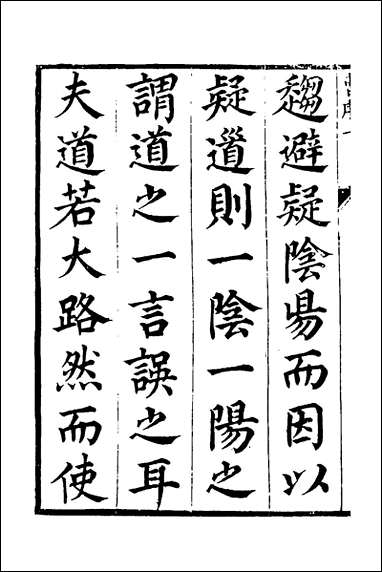 趨避疑陰昜而因以
疑道則一陰一陽之
謂道之一言誤之耳
夫道若大路然而使